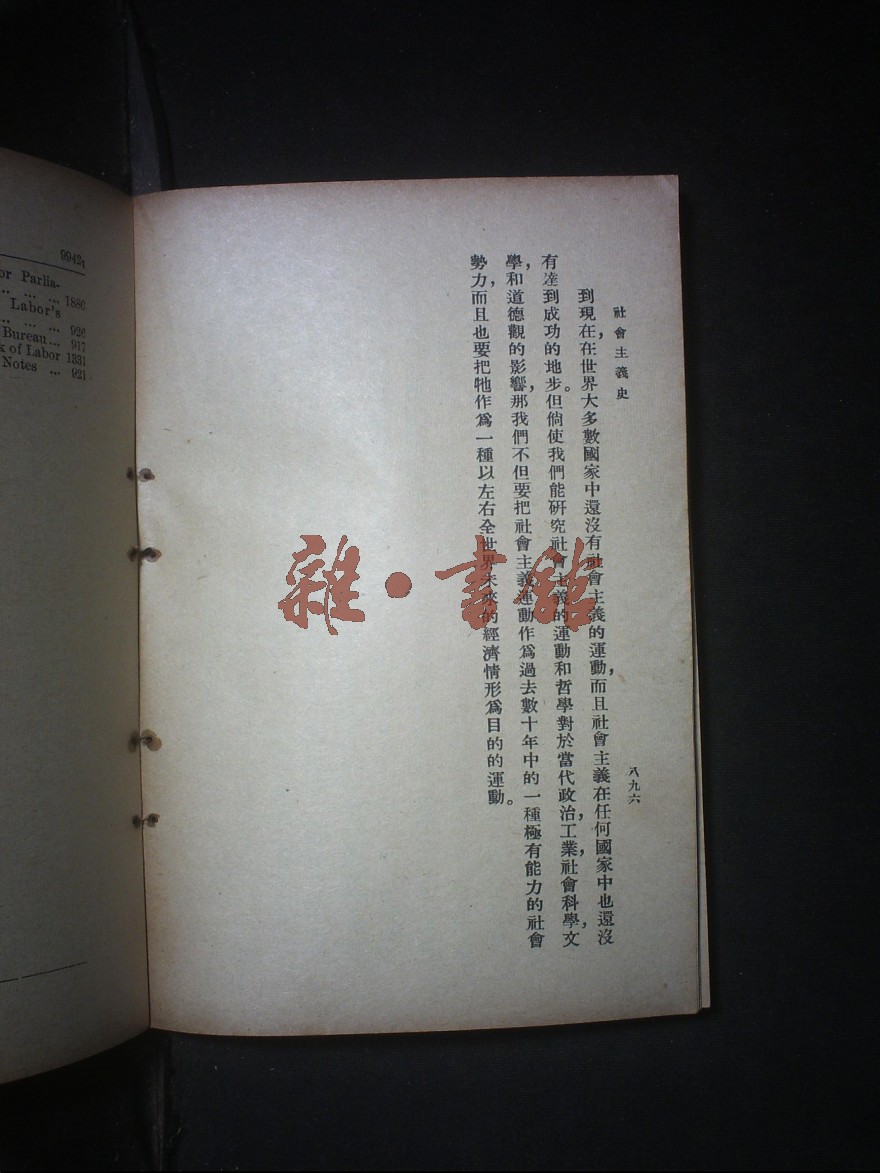 社會主義史
八九六
到現在,在世界大多數國家中還沒有社會主義的運動,而且社會主義在任何國家中也還沒
有達到成功的地步。但倘使我們能研究社會主義的運動和哲學對於當代政治,工業,社會科學,文
學,和道德觀的影響,那我們不但要把社會主義運動作爲過去數十年中的一種極有能力的社會
勢力,而且也要把牠作爲一種以左右全世界未來的經濟情形爲目的的運動。
雜·書館
9942
or Parlia-
... ... ... 1880
Labor's
... ... ... 926
Bureau... 917
k of Labor 1331
Notes ... 921